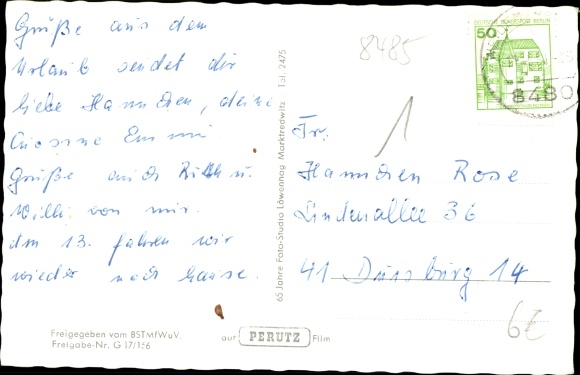 Grüße aus dem
Urlaub sendet dir
liebe Hannchen, deine
Emmi
Grüße auch u.
Willi von mir.
Am 13. fahren wir
wieder nach hause.
Freigegeben vom BSTMfWuV.
Freigabe-Nr. G 17/156
65 Jahre Foto-Studio Löwenhag Marktredwitz Tel. 2475
auf PERUTZ Film
8485
DEUTSCHE BUNDESPOST BERLIN
50
8480
1
Fr.
Hannchen Rose
Lindenallee 36
41 Duisburg 14
6€